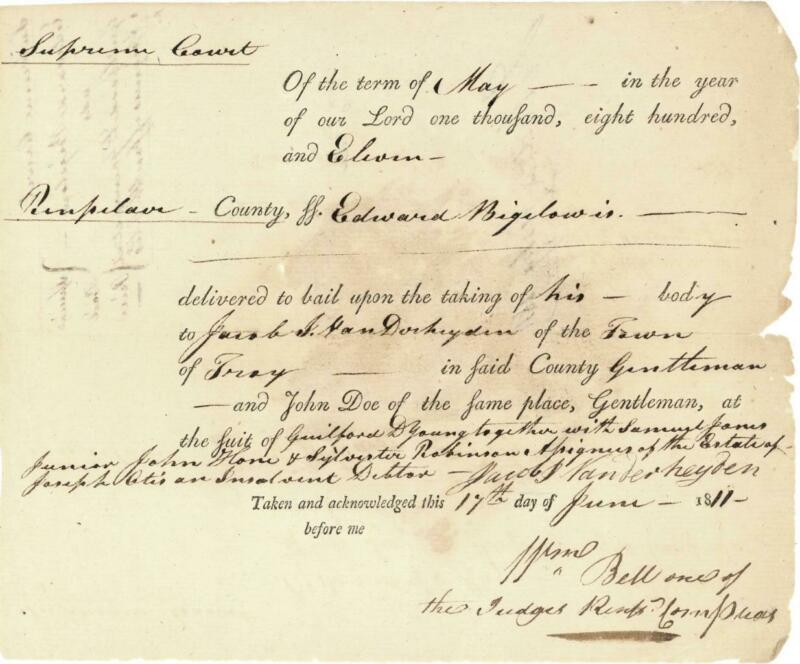 Supreme Court
Of the term of May — — in the year
of our Lord one thouſand, eight hundred,
and Eleven —
Rensselaer - County, ſſ. Edward Bigelow is. —
delivered to bail upon the taking of his — body
to Jacob J. VanDerheyden of the Town
of Troy — in ſaid County Gentleman
— and John Doe of the ſame place, Gentleman, at
the ſuit of Guilford D Young together with Samuel Jones
Junior John & Sylvester Robinson Assignees of the Estate of
Joseph an Insolvent Debtor — Jacob J Vanderheyden
Taken and acknowledged this 17th day of June — 1811 —
before me
Wm Bell one of
the Judges Renss. Com Pleas